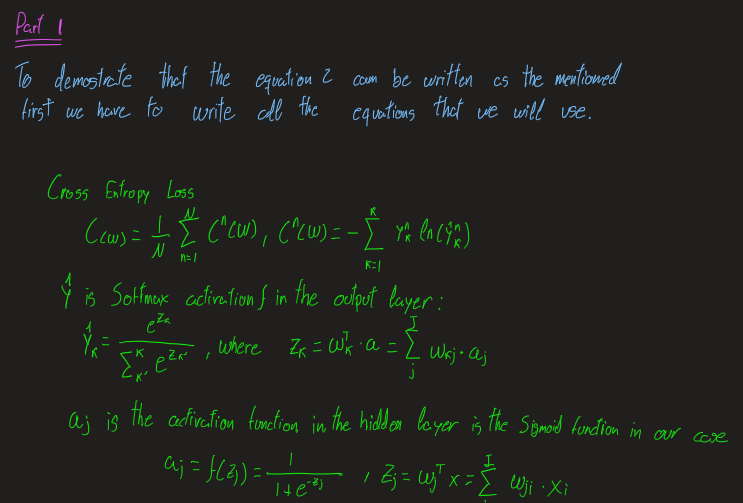 Part 1
To demostrate that the equation 2 can be written as the mentioned
first we have to write all the equations that we will use.
Cross Entropy Loss
C(w) = 1/N ∑_{n=1}^{N} C^n(w), C^n(w) = - ∑_{k=1}^{K} y_k^n ln(ŷ_k^n)
ŷ is Softmax activation f in the output layer:
ŷ_k = e^{z_k} / ∑_{k'}^{K} e^{z_{k'}}, where z_k = w_k^T · a = ∑_{j}^{J} w_{kj} · a_j
a_j is the activation function in the hidden layer is the Sigmoid function in our case
a_j = f(z_j) = 1 / (1 + e^{-z_j}), z_j = w_j^T x = ∑_{i}^{I} w_{ji} · x_i